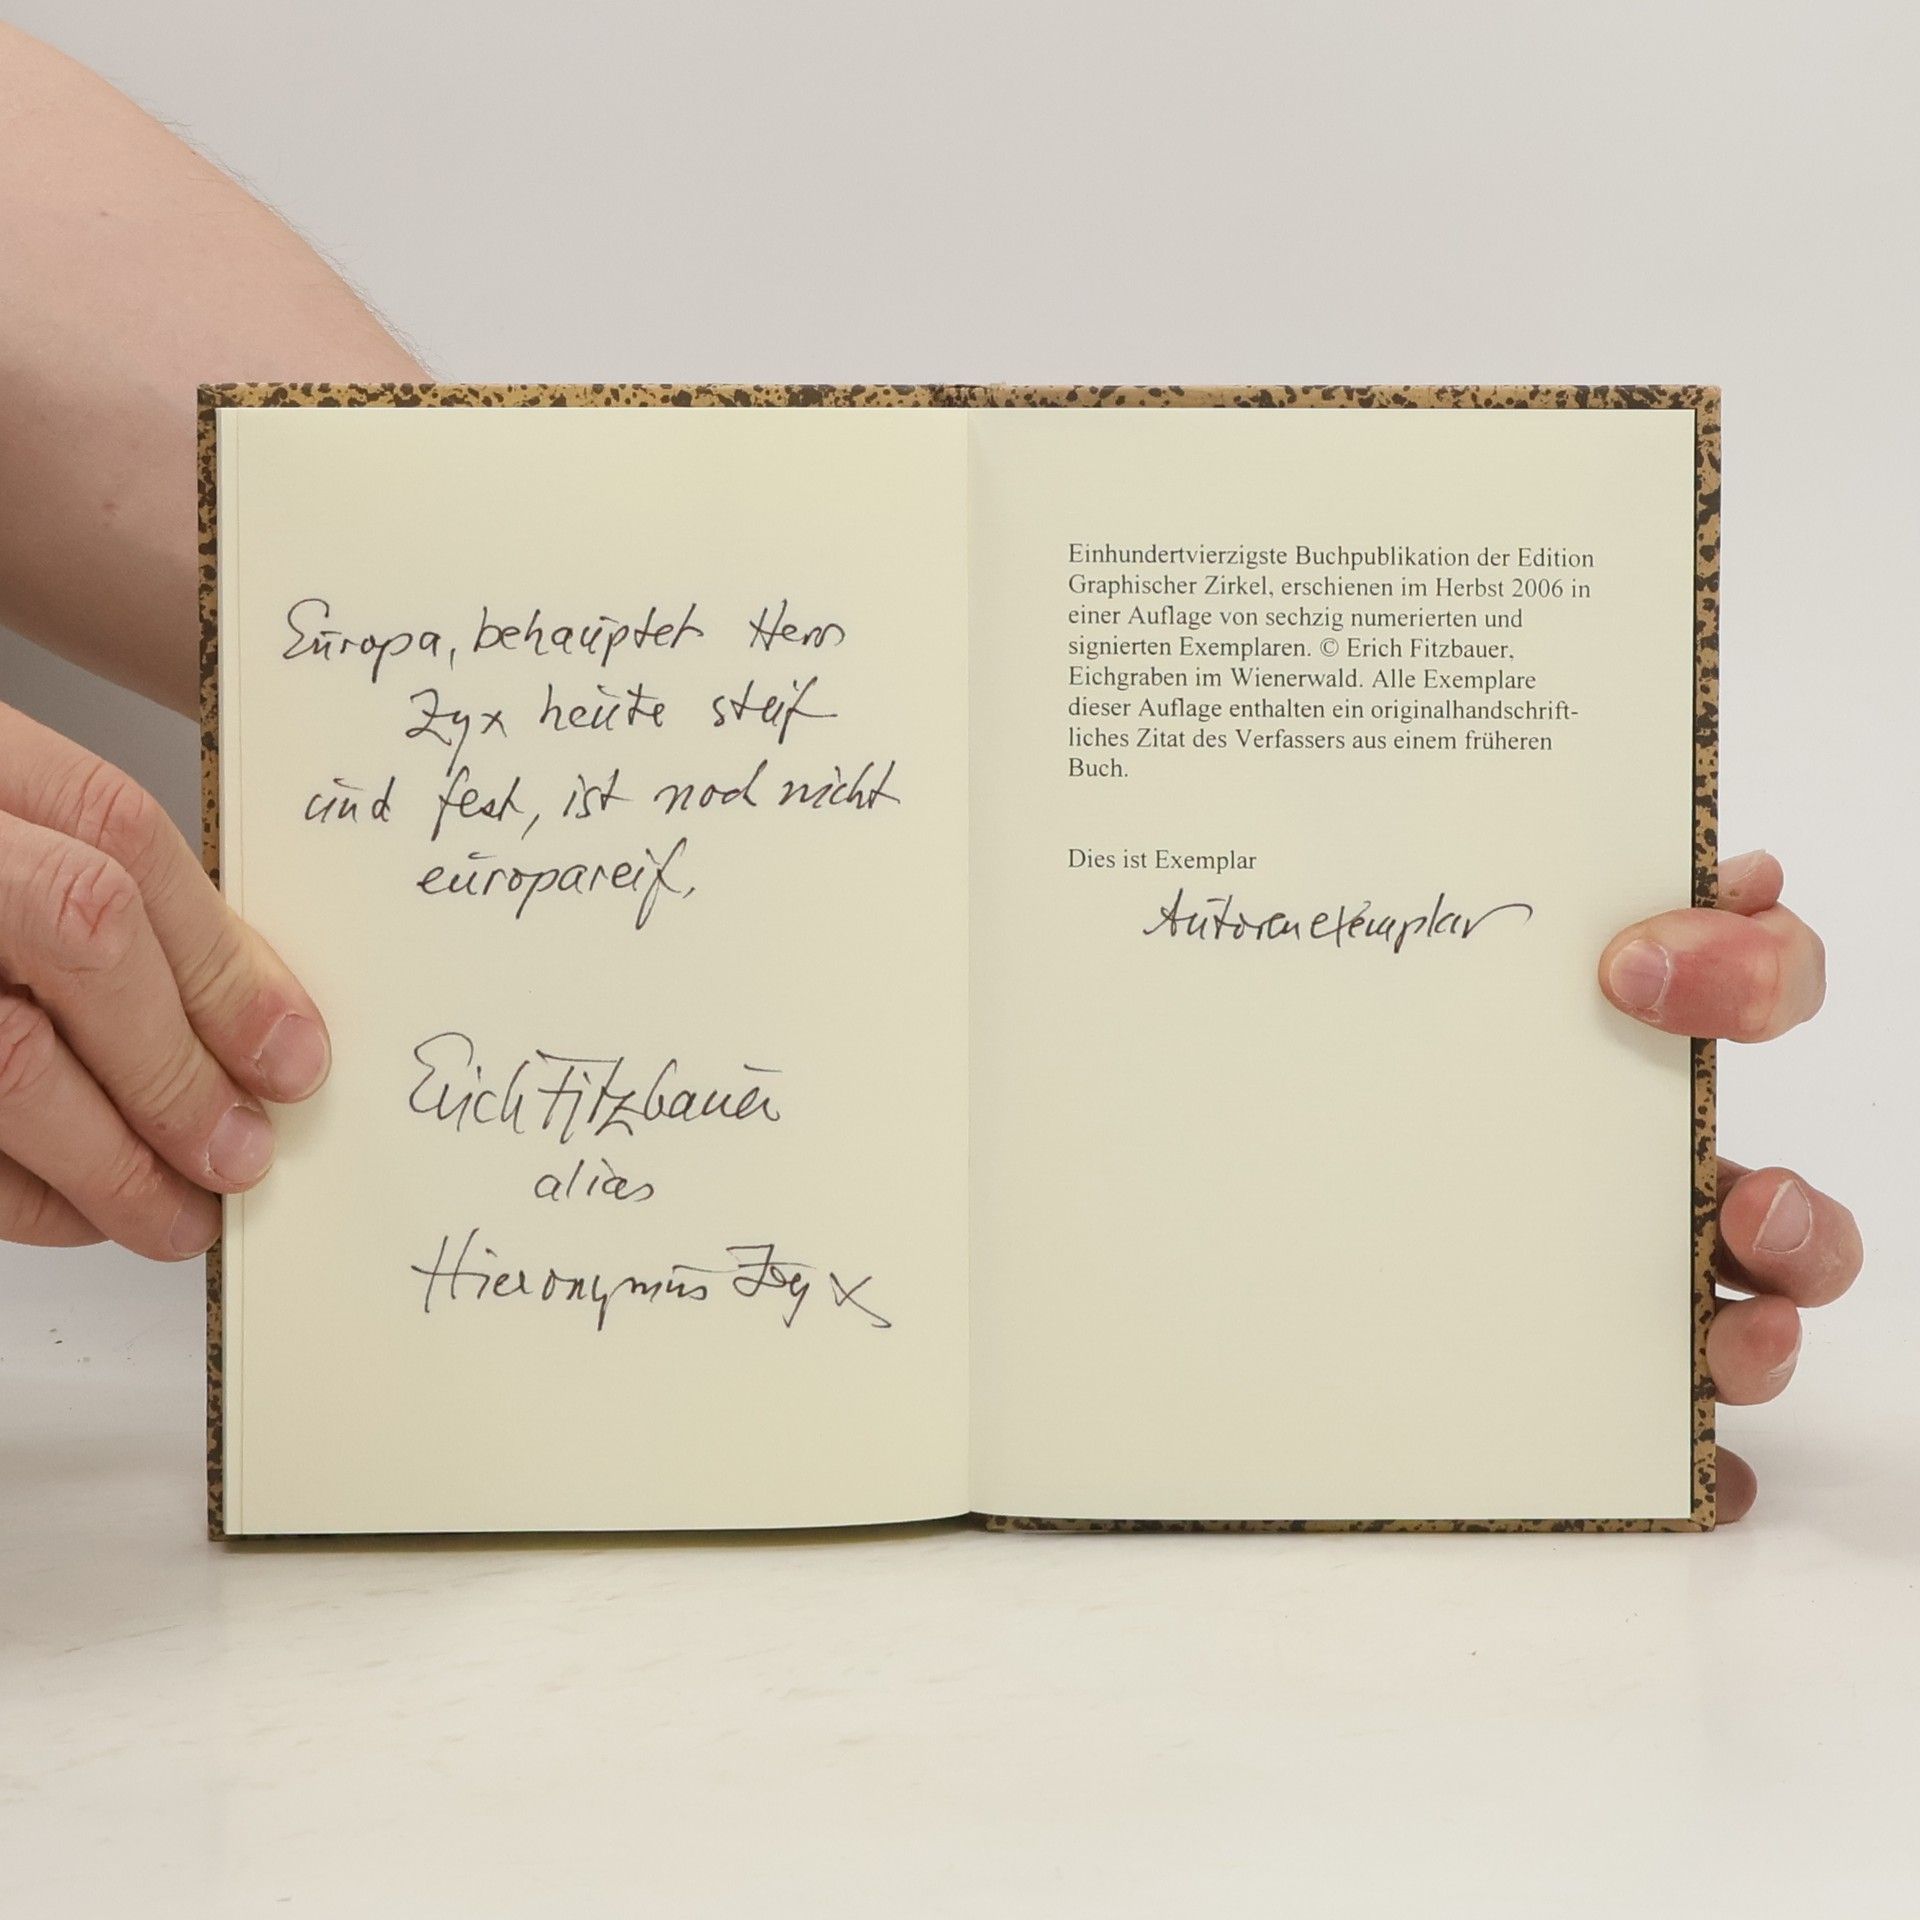 Europa, behauptet Herr
Zyx heute steif
und fest, ist noch nicht
europareif.
Erich Fitzbauer
alias
Hieronymus Zyx
Einhundertvierzigste Buchpublikation der Edition
Graphischer Zirkel, erschienen im Herbst 2006 in
einer Auflage von sechzig numerierten und
signierten Exemplaren. © Erich Fitzbauer,
Eichgraben im Wienerwald. Alle Exemplare
dieser Auflage enthalten ein originalhandschrift-
liches Zitat des Verfassers aus einem früheren
Buch.
Dies ist Exemplar
Autorenexemplar